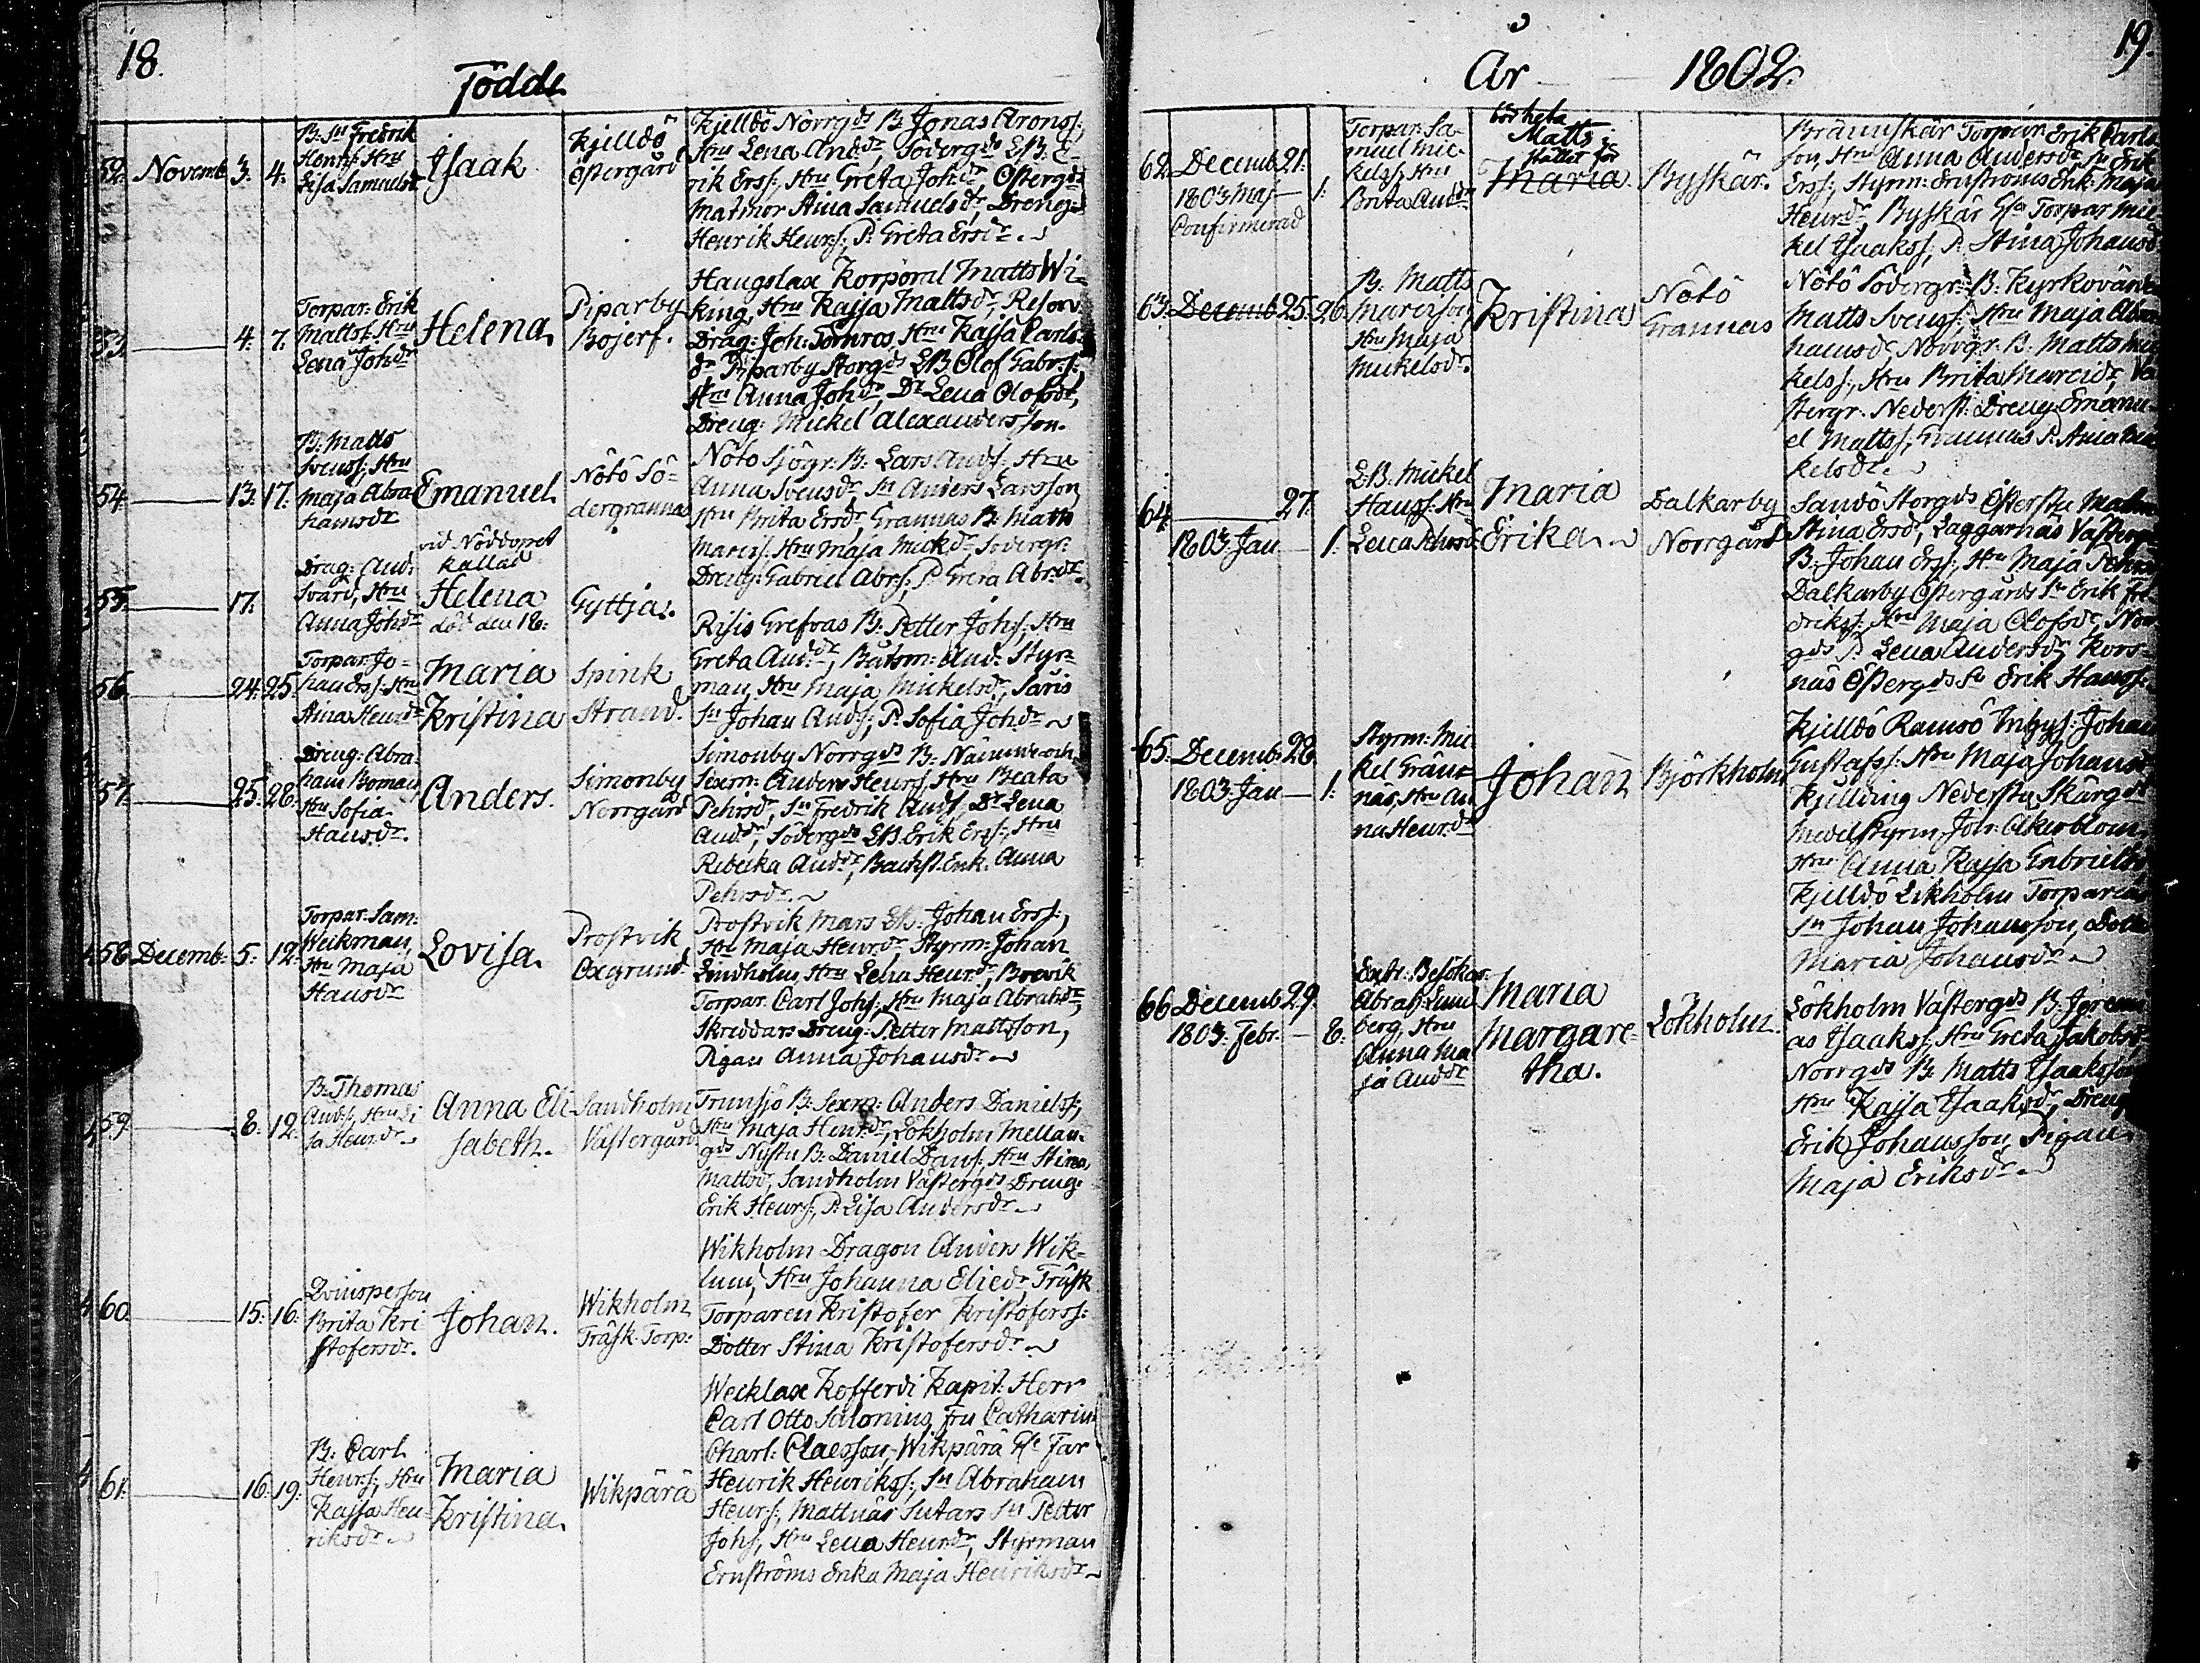 18.
Födde
52. Novemb. 3. 4.
B. Sn Fredrik
Henrss. Hru
Lisa Samuelsdr
Isaak
Kjelldö
Östergård
Kjelldö Norrgds B. Jonas Aronss.
Hru Lena Anddr, Södergds LB. E-
rik Erss. Hru Greta Johdr Östergds
Matmor Stina Samuelsdr, Dreng.
Henrik Henrss., P. Greta Ersdr
53. 4. 7.
Torpar. Erik
Mattss. Hru
Lena Johdr
Helena.
Piparby
Bojerf.
Haugslax Korporal Matts Wi-
king, Hru Kajsa Mattsdr, Reserv.
Drag. Joh. Törnros, Hru Kajsa Carls-
dr Piparby Storgds LB Olof Gabrss.,
Hru Anna Johdr, Dr Lena Olofsdr,
Dreng. Mickel Alexandersson.
54. 13. 17.
B. Matts
Svenss. Hru
Maja Abra-
hamsdr
Emanuel.
Nötö Sö-
dergrannas
Nötö Sjögr. B. Lars Andss. Hru
Anna Svensdr, Sn Anders Larsson
Hru Brita Ersdr, Grannas B. Matts
Marcss. Hru Maja Mickdr Södergr.
Dreng. Gabriel Abrss., P. Greta Abrdr.
55. 17.
Drag. And.
Svärd, Hru
Anna Johdr
vid Nöddopet
kallad
Helena
död den 18.
Gyttja.
56. 24. 25.
Torpar. Jo-
han Erss. Hru
Stina Henrdr
Maria
Kristina
Spink
Strand.
Risis Grefvas B. Petter Johss., Hru
Greta Anddr, Båtsm. And. Styr-
man, Hru Maja Mickelsdr, Saris
Sn Johan Andss., P. Sofia Johdr
57. 25. 28.
Dreng. Abra-
ham Boman
Hru Sofia
Hansdr.
Anders.
Simonby
Norrgård
Simonby Norrgds B. Nämnd och
Sexm. Anders Henrss. Hru Beata
Pehrsdr, Sn Fredrik Andss. Dr Lena
Anddr, Södergds LB. Erik Erss., Hru
Rebecka Anddr, Backst. Enk. Anna
Pehrsdr.
58. Decemb. 5. 12.
Torpar. Sam.
Weikman
Hru Maja
Hansdr
Lovisa.
Prostvik
Oxgrund.
Prostvik Mars LB. Johan Erss.,
Hru Maja Henrdr, Styrm. Johan
Lindholm Hru Lena Henrdr, Brevik
Torpar. Carl Johss., Hru Maja Abrahdr,
Skreddars Dreng. Petter Mattsson,
Pigan Anna Johansdr
59. 8. 12.
B. Thomas
Andss. Hru Li
sa Henrdr
Anna Eli-
sabeth.
Sandholm
Västergård
Trunsjö B. Sexm. Anders Danielss.,
Hru Maja Henrdr, Lökholm Mellan-
gds Nystu B. Daniel Danss. Hru Stina
Mattsdr, Sandholm Västergds Dreng.
Erik Henrss., P. Lisa Andersdr
60. 15. 16.
Qvinsperson
Brita Kri
stofersdr.
Johan.
Wikholm
Träsk. Torp.
Wikholm Dragon Anders Wik-
lund, Hru Johanna Eliedr, Träsk
Torparen Kristofer Kristoferss.
Dotter Stina Kristofersdr
61. 16. 19.
B. Carl
Henrss. Hru
Kajsa Hen-
riksdr
Maria
Kristina.
Wikpärä
Wecklax Kofferdi Kapit. Herr
Carl Otto Salonius, Fru Catharin
Charl. Claesson, Wikpärä Far
Henrik Henrikss., Sn Abraham
Henrss., Mattnäs Sutars Sn Petter
Johss., Hru Lena Henrdr, Styrman
Ernströms Enka Maja Henriksdr
År 1802.
19.
62. Decemb. 21.
1803. Maj 1.
Confirmerad
Torpar. Sa-
muel Mic-
kelss., Hru
Brita Anddr
bör heta
Matts
stället för
Maria.
Byskär.
Brännskär Torpar. Erik Carls-
son, Hru Anna Andersdr, Sn Erik
Erss., Styrm. Ernströms Enk. Maja
Henrdr, Byskär Torpar Mic-
kel Isakss., P. Stina Johansd
63. Decemb. 25. 26.
B. Matts
Marcisson,
Hru Maja
Mickelsdr.
Kristina
Nötö
Grannas
Nötö Södergr. B. Kyrkovärd
Matts Svenss. Hru Maja Abra-
hamsdr, Norrgr. B. Matts Mic-
kelss., Hru Brita Marcidr, Vä-
stergr. Nederst. Dreng Emanu-
el Mattss., Grannas P. Anna Mic-
kelsdr.
64. 27.
1803. Jan 1.
LB. Mickel
Hanss. Hru
Lena Pehrsd
Maria
Erika.
Dalkarby
Norrgård
Sandö Storgds Österstu Matm.
Stina Ersdr, Laggarnäs Västerg
B. Johan Erss., Hru Maja Pehrs
Dalkarby Östergårds Sn Erik Fre-
drikss. Hru Maja Olofsdr, Norr-
gds P. Lena Andersdr, Kors-
näs Östergds Sn Erik Hanss.
65. Decemb. 28.
1803. Jan 1.
Styrm. Mic-
kel Grän-
näs, Hru An
na Henrdr
Johan
Björkholm
Kjelldö Ramsö Inhyss. Johan
Gustafss. Hru Maja Johansd
Kjilding Nederstu Skärgds
Medelstyrm. Joh. Åkerblom
Hru Anna Kajsa Gabrielsd
Kjelldö Ekholm Torparens
Sn Johan Johansson, Dotter
Maria Johansdr
66. Decemb. 29.
1803. Febr. 6.
Extr. Besökar.
Abrah. Lund
berg, Hru
Anna Ma
ja Anddr
Maria
Margare-
tha.
Lökholm.
Lökholm Västergds B. Jeremi-
as Isaakss., Hru Greta Jakobsd
Norrgds B. Matts Isaksson
Hru Kajsa Isaaksdr, Dreng
Erik Johansson, Pigan
Maja Eriksdr